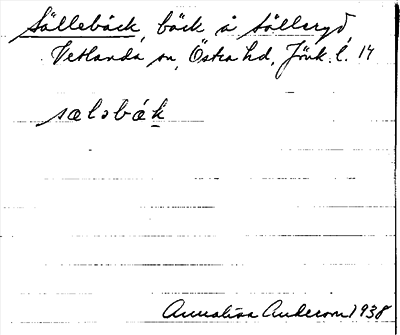 Sällebäck, bäck å Sälleryd,
Vetlanda sn, Östra hd, Jönk. l. 14
sæləbäk
Annalisa Anderson 1938